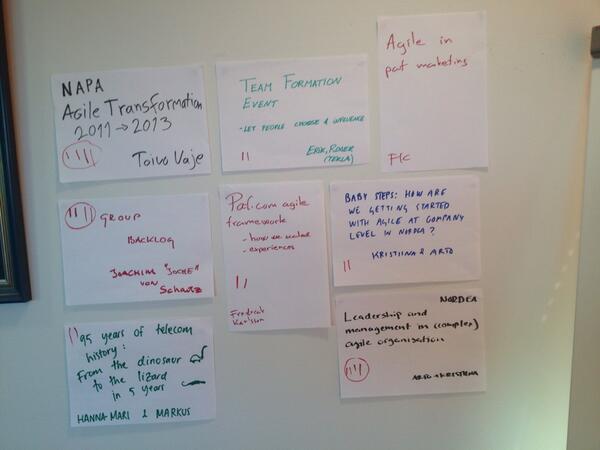 NAPA
Agile Transformation
2011 → 2013
Toivo Vaje
TEAM FORMATION
EVENT
- LET PEOPLE CHOOSE & INFLUENCE
ERIK, ROGER
(TEKLA)
Agile in
paf marketing
GROUP
BACKLOG
JOACHIM "JOCHE"
VON
Schantz
Paf.com agile
framework
- how we work
- experiences
Fredrik
Karlsson
BABY STEPS: HOW ARE
WE GETTING STARTED
WITH AGILE AT COMPANY
LEVEL IN NORDEA?
KRISTIINA & ARTO
95 years of telecom
history:
From the dinosaur
to the lizard
in 5 years
HANNA MARI & MARKUS
NORDEA
Leadership and
management in (complex)
agile organisation
ARTO + KRISTIINA